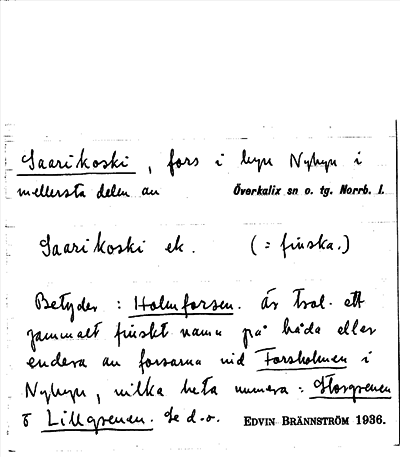 Saarikoski, fors i byn Nybyn i
mellersta delen av Överkalix sn o. tg. Norrb. l.
Saarikoski ek. (= finska.)
Betyder: Holmforsen. Är trol. ett
gammalt finskt namn på båda eller
endera av forsarna vid Forsholmen i
Nybyn, vilka heta numera: Storgrenen
o Lillgrenen. Se d.o. EDVIN BRÄNNSTRÖM 1936.